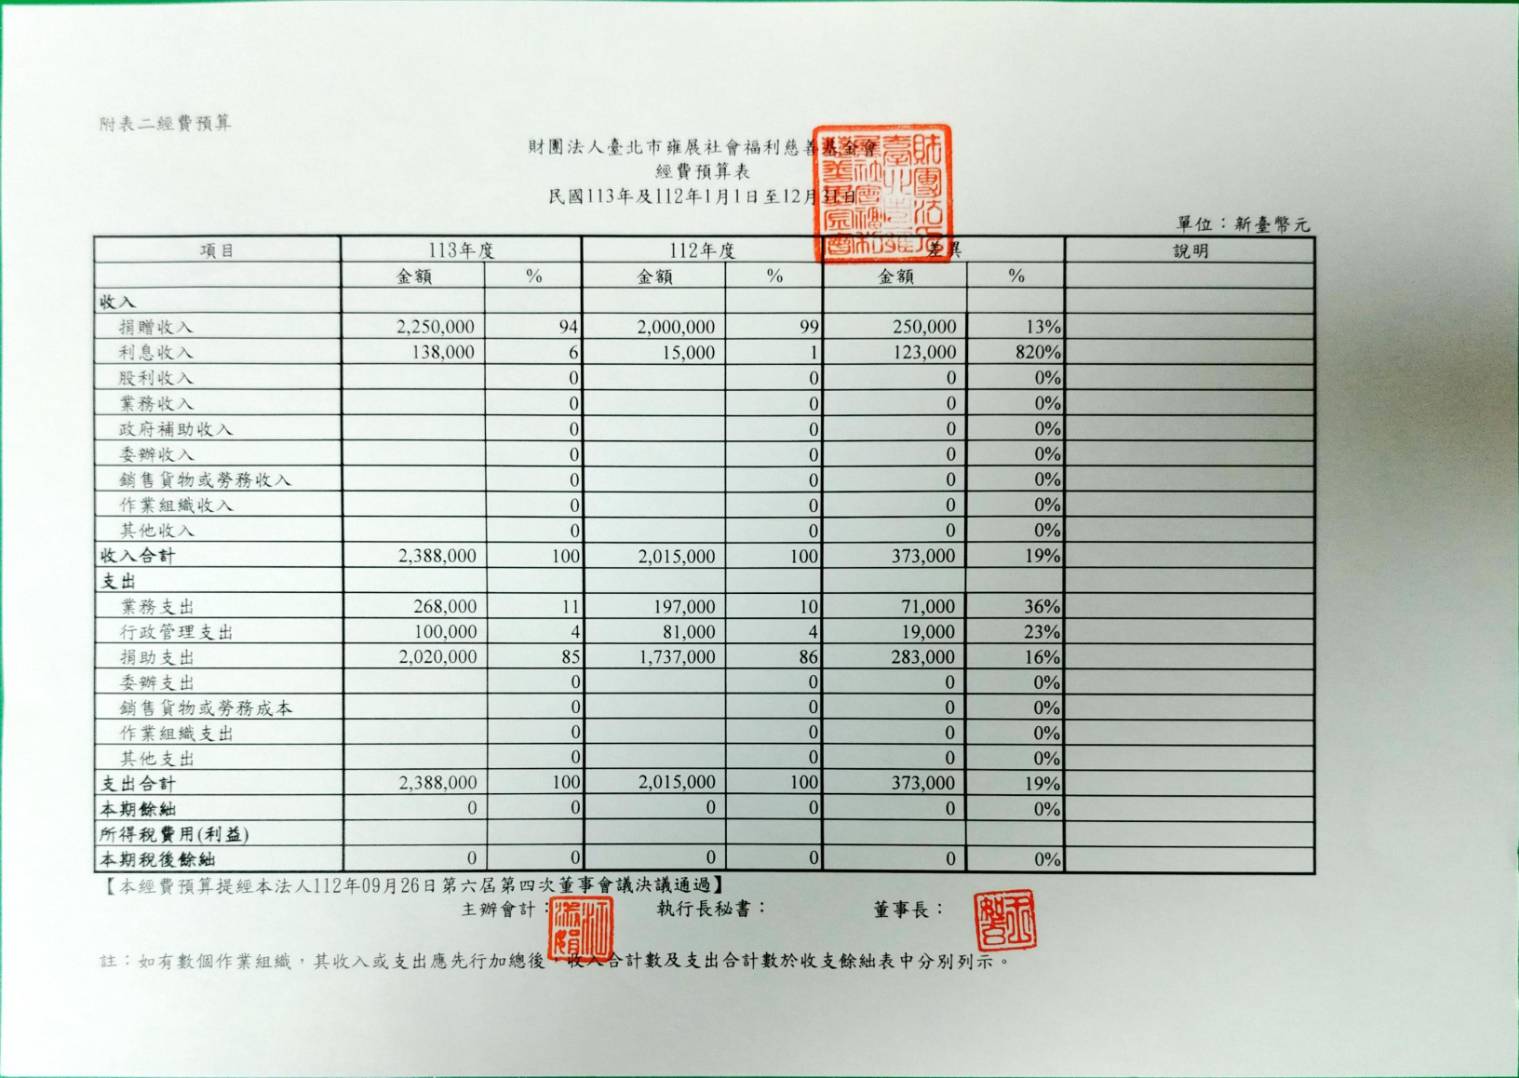 附表二經費預算
財團法人臺北市雍展社會福利慈善基金會
經費預算表
民國113年及112年1月1日至12月31日
單位：新臺幣元
項目 113年度 112年度 差異 說明
金額 % 金額 % 金額 %
收入
捐贈收入 2,250,000 94 2,000,000 99 250,000 13%
利息收入 138,000 6 15,000 1 123,000 820%
股利收入 0 0 0 0%
業務收入 0 0 0 0%
政府補助收入 0 0 0 0%
委辦收入 0 0 0 0%
銷售貨物或勞務收入 0 0 0 0%
作業組織收入 0 0 0 0%
其他收入 0 0 0 0%
收入合計 2,388,000 100 2,015,000 100 373,000 19%
支出
業務支出 268,000 11 197,000 10 71,000 36%
行政管理支出 100,000 4 81,000 4 19,000 23%
捐助支出 2,020,000 85 1,737,000 86 283,000 16%
委辦支出 0 0 0 0%
銷售貨物或勞務成本 0 0 0 0%
作業組織支出 0 0 0 0%
其他支出 0 0 0 0%
支出合計 2,388,000 100 2,015,000 100 373,000 19%
本期餘絀 0 0 0 0 0 0%
所得稅費用(利益)
本期稅後餘絀 0 0 0 0 0 0%
【本經費預算提經本法人112年09月26日第六屆第四次董事會議決議通過】
主辦會計： 執行長秘書： 董事長：
註：如有數個作業組織，其收入或支出應先行加總後，收入合計數及支出合計數於收支餘絀表中分別列示。